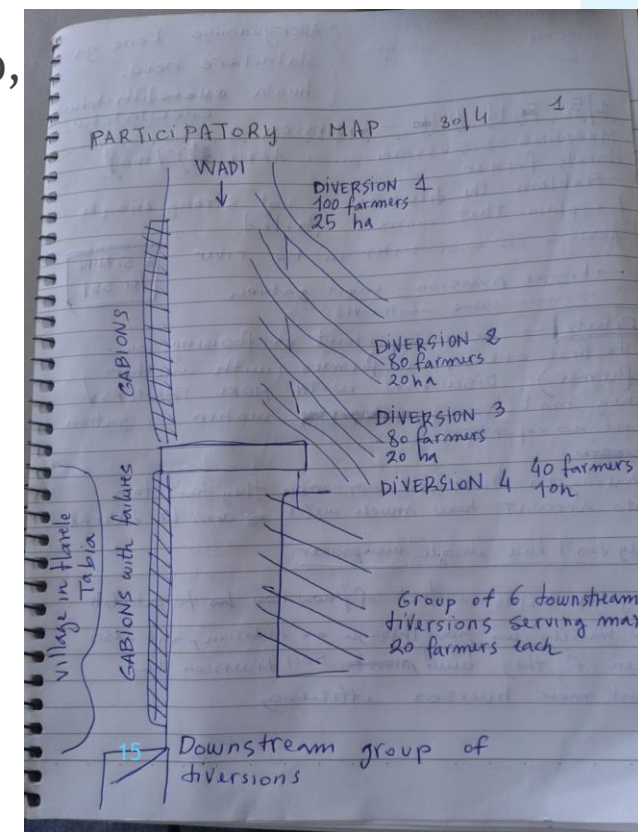 PARTICIPATORY MAP 30/4
1
WADI
DIVERSION 1
100 farmers
25 ha
GABIONS
DIVERSION 2
80 farmers
20ha
DIVERSION 3
80 farmers
20 ha
DIVERSION 4 40 farmers
10h
GABIONS with failures
Village in Harele
Tabia
Group of 6 downstream
diversions serving max
20 farmers each
15
Downstream group of
diversions